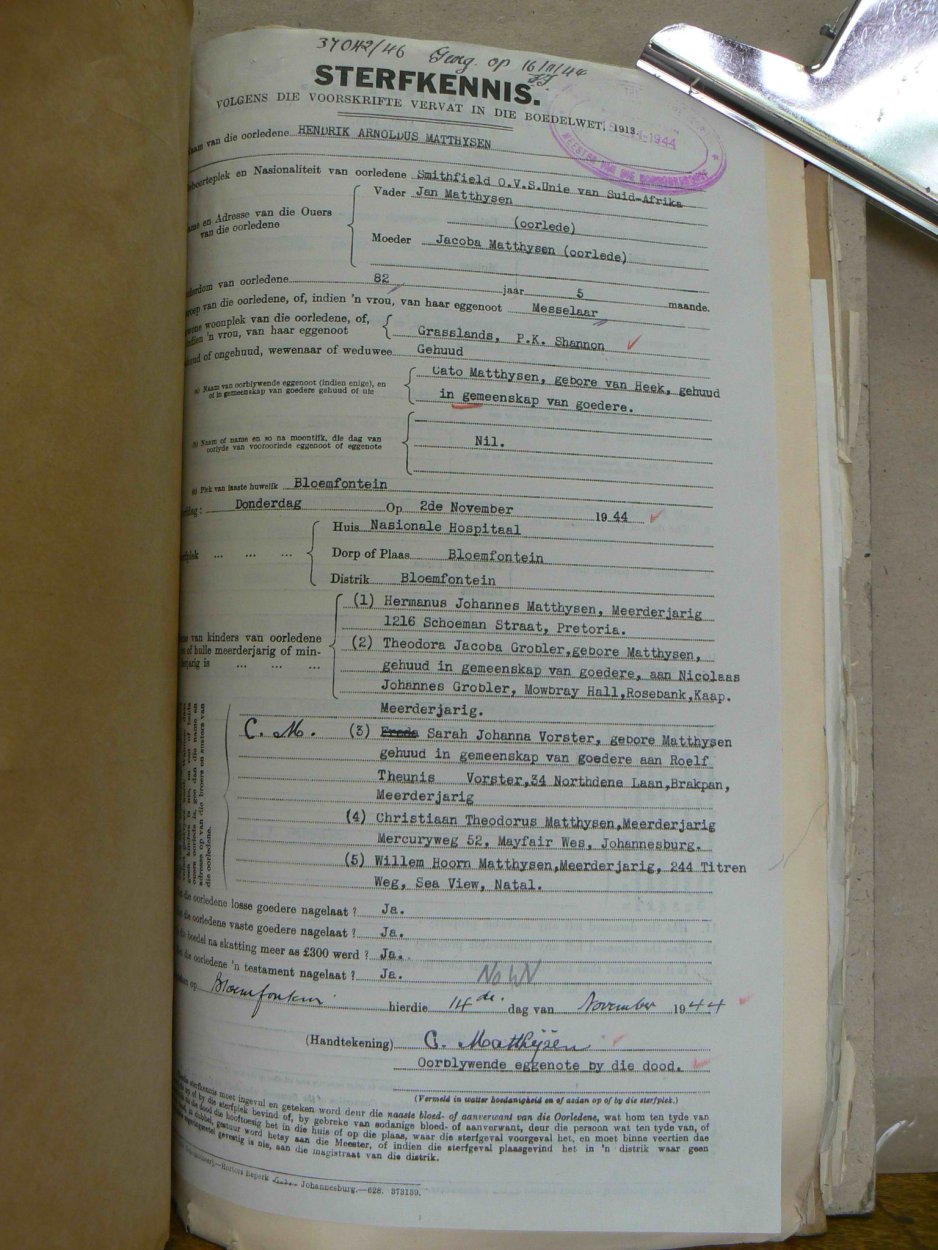 37042/46 Georg. op 16/11/44
STERFKENNIS.
VOLGENS DIE VOORSKRIFTE VERVAT IN DIE BOEDELWET, 1913.
-1944
MEESTER VAN DIE
Naam van die oorledene HENDRIK ARNOLDUS MATTHYSEN
eboorteplek en Nasionaliteit van oorledene Smithfield O.V.S.Unie van Suid-Afrika
Vader Jan Matthysen
ame en Adresse van die Ouers van die oorledene
(oorlede)
Moeder Jacoba Matthysen (oorlede)
derdom van oorledene 82 jaar 5 maande.
eroep van die oorledene, of, indien 'n vrou, van haar eggenoot Messelaar
ewone woonplek van die oorledene, of, indien 'n vrou, van haar eggenoot Grasslands, P.K. Shannon
ehuud of ongehuud, wewenaar of weduwee Gehuud
(a) Naam van oorblywende eggenoot (indien enige), en of in gemeenskap van goedere gehuud of nie
Cato Matthysen, gebore van Heek, gehuud
in gemeenskap van goedere.
(b) Naam of name en so na moontlik, die dag van oorlyde van vooroorlede eggenoot of eggenote
Nil.
(c) Plek van laaste huwelik Bloemfontein
dag: Donderdag Op 2de November 1944
Huis Nasionale Hospitaal
plek ... ... ... Dorp of Plaas Bloemfontein
Distrik Bloemfontein
(1) Hermanus Johannes Matthysen, Meerderjarig
1216 Schoeman Straat, Pretoria.
me van kinders van oorledene
(2) Theodora Jacoba Grobler,gebore Matthysen,
of hulle meerderjarig of min-
gehuud in gemeenskap van goedere, aan Nicolaas
erjarig is ... ... ...
Johannes Grobler, Mowbray Hall,Rosebank,Kaap.
Meerderjarig.
C. M. (3) Sarah Johanna Vorster, gebore Matthysen
gehuud in gemeenskap van goedere aan Roelf
Theunis Vorster,34 Northdene Laan,Brakpan,
Meerderjarig
(4) Christiaan Theodorus Matthysen,Meerderjarig
Mercuryweg 52, Mayfair Wes, Johannesburg.
(5) Willem Hoorn Matthysen,Meerderjarig, 244 Titren
Weg, Sea View, Natal.
adresse op van die broers en susters van
die oorledene.
die oorledene losse goedere nagelaat? Ja.
die oorledene vaste goedere nagelaat? Ja.
die boedel na skatting meer as £300 werd? Ja.
die oorledene 'n testament nagelaat? Ja.
op Bloemfontein hierdie 14de. dag van November 1944
(Handtekening) C. Matthijsen
Oorblywende eggenote by die dood.
(Vermeld in watter hoedanigheid en of aedan op of by die sterfplek.)
sterfkennis moet ingevul en geteken word deur die naaste bloed- of aanverwant van die Oorledene, wat hom ten tyde van
op of by die sterfplek bevind of, by gebreke van sodanige bloed- of aanverwant, deur die persoon wat ten tyde van, of
die dood die hooftoesig het in die huis of op die plaas, waar die sterfgeval voorgeval het, en moet binne veertien dae
gestuur word hetsy aan die Meester, of indien die sterfgeval plaasgevind het in 'n distrik waar geen
gevestig is nie, aan die magistraat van die distrik.
Johannesburg.—628. 373139.